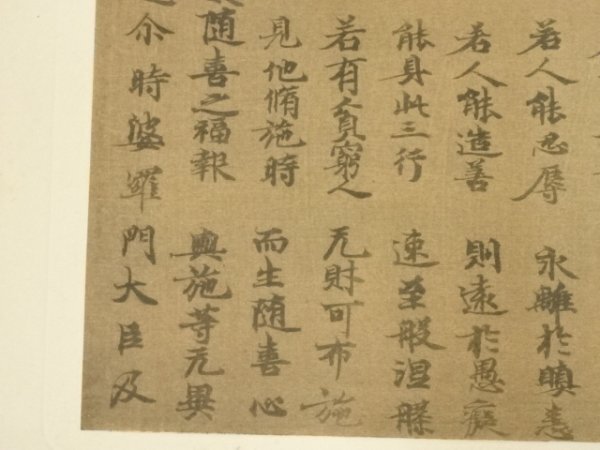 若人能忍辱 永離於瞋恚
若人能造善 則遠於愚癡
能具此三行 速至般涅槃
若有貧窮人 无財可布施
見他脩施時 而生随善心
随喜之福報 與施等无異
尒時婆羅門大臣及